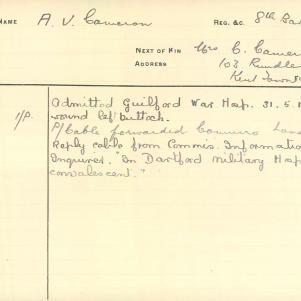 NAME A. V. Cameron REG. &C. 8th Bat
NEXT OF KIN Mrs C. Camer
ADDRESS 103 Rundle
Kent Town
Admitted Guilford War Hosp. 31.5.1
1/P. wound left buttock.
P/Cable forwarded Commrs Lon
Reply cable from Commis. Informatio
Inquiries. "In Dartford Military Hosp
convalescent."